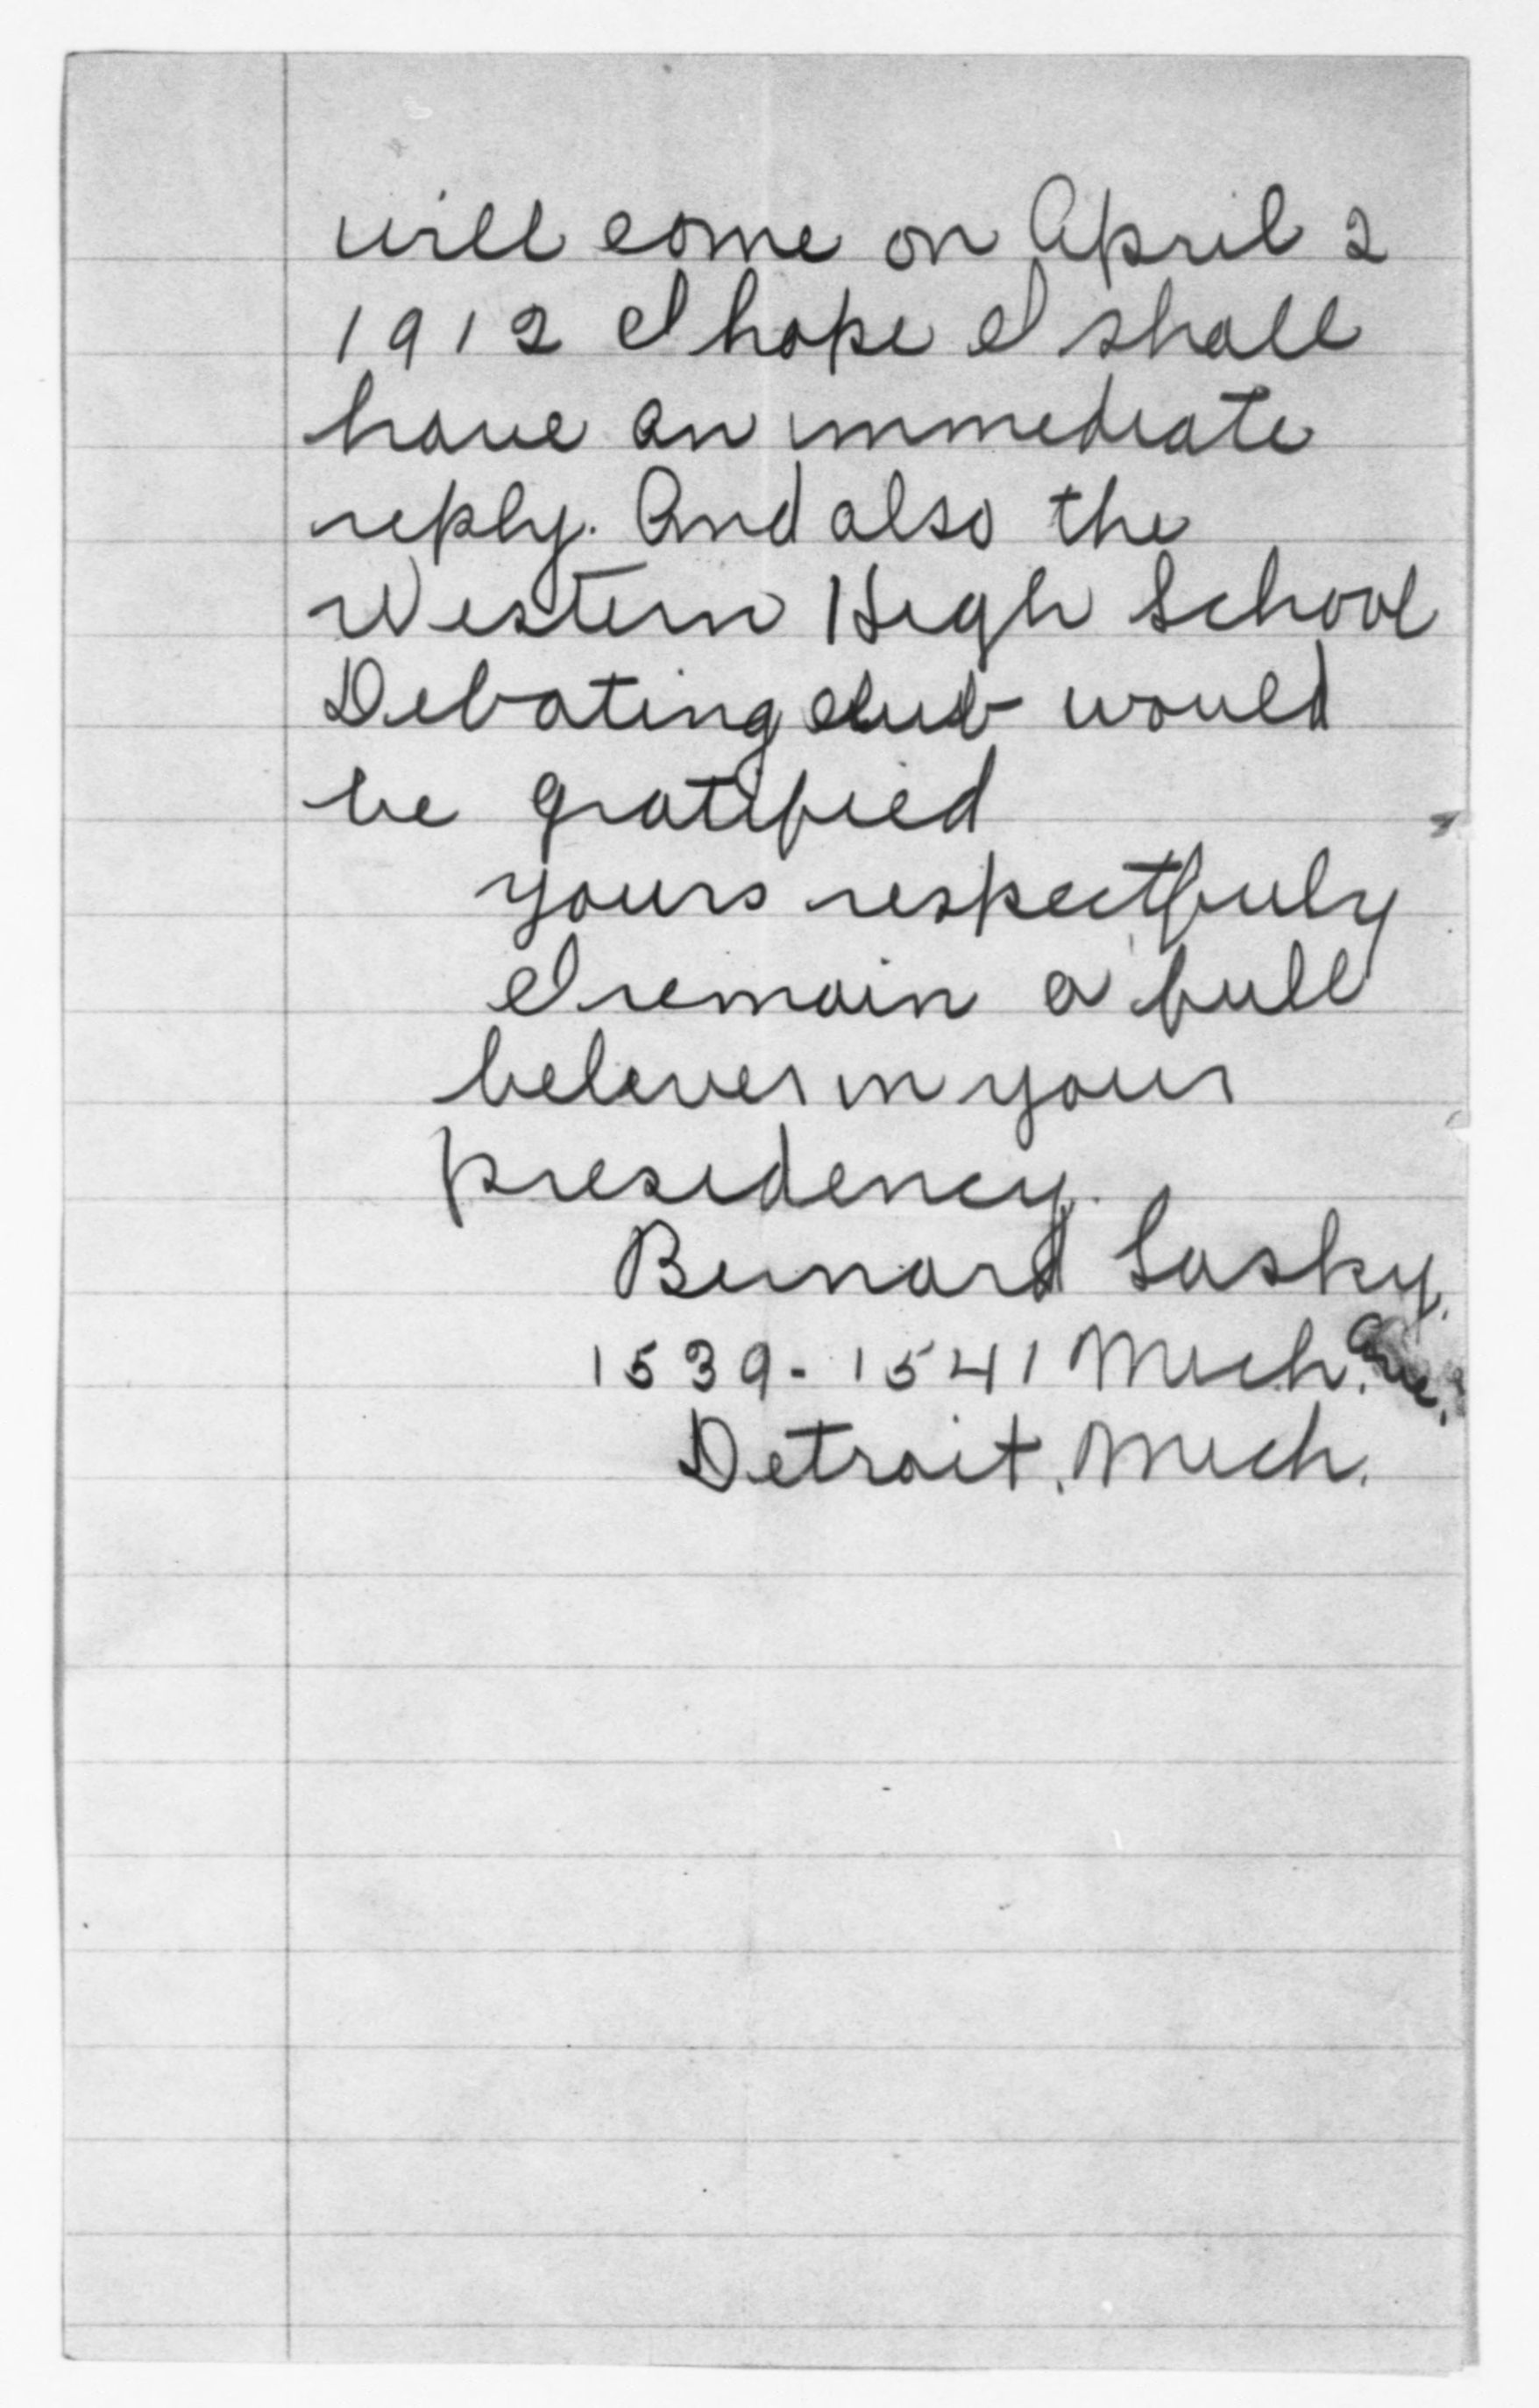 will come on April 2
1912 I hope I shall
have an immediate
reply. And also the
Western High School
Debating club would
be gratified
yours respectfuly
I remain a full
belever in your
presidency.
Bernard Lasky.
1539-1541 Mich. Ave.
Detroit, Mich.